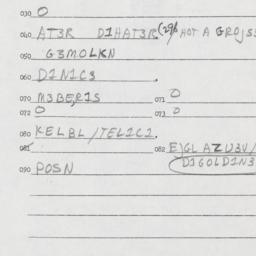 030 O
040 AT3R D1HAT3R (2% HOT A GROJS
050 G3MOLKN
060 D1N1C3
070 M3BER1S 071 O
072 O 073 O
080 KELBL/TEL1C1.
081 082 E)GL AZU3V/
D1GOLD1N3
090 POSN